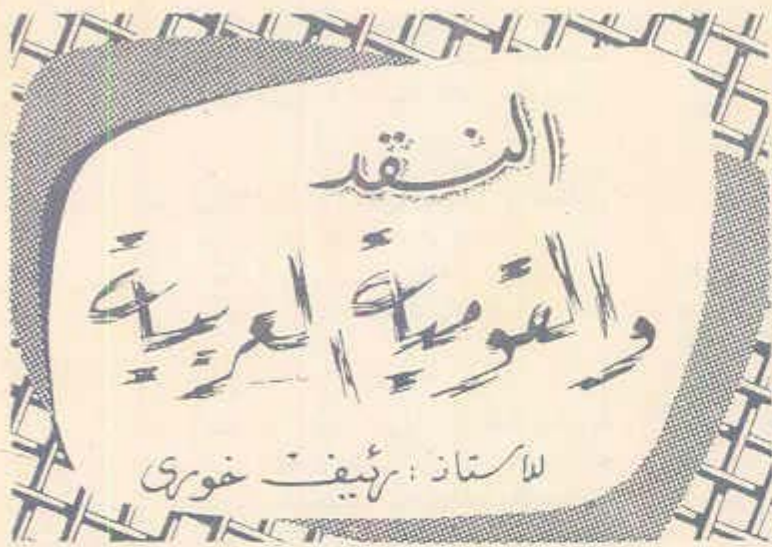 النقد
والقومية العربية
للأستاذ : رئيف خوري